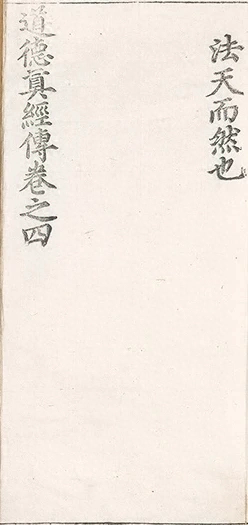 法天而然也
道德真經傳卷之四